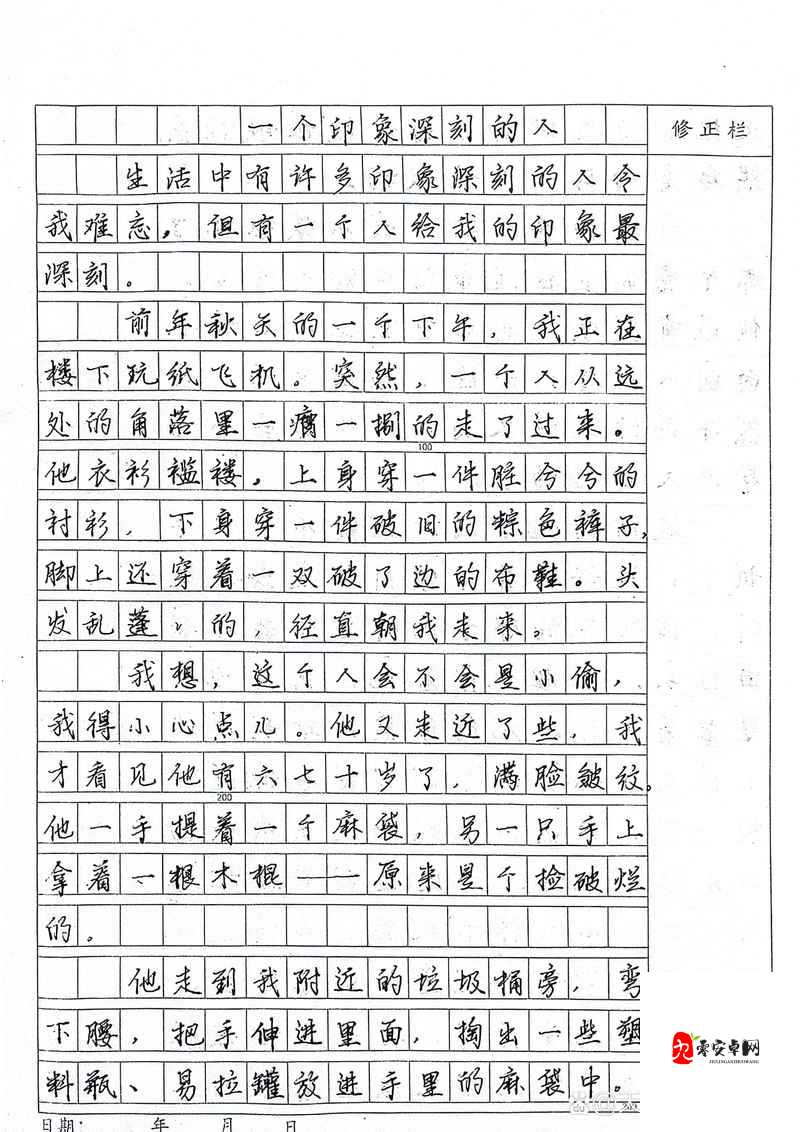 一个印象深刻的人
修正栏
生活中有许多印象深刻的人令
我难忘，但有一个人给我的印象最
深刻。
前年秋天的一个下午，我正在
楼下玩纸飞机。突然，一个人从远
处的角落里一瘸一拐的走了过来。
100
他衣衫褴褛。上身穿一件脏兮兮的
衬衫，下身穿一件破旧的棕色裤子，
脚上还穿着一双破了边的布鞋。头
发乱蓬、的，径直朝我走来。
我想，这个人会不会是小偷，
我得小心点儿。他又走近了些，我
才看见他有六七十岁了，满脸皱纹。
200
他一手提着一个麻袋，另一只手上
拿着一根木棍——原来是个捡破烂
的。
他走到我附近的垃圾桶旁，弯
下腰，把手伸进里面，掏出一些塑
料瓶、易拉罐放进手里的麻袋中。
零安卓网
日期： 年 月 日